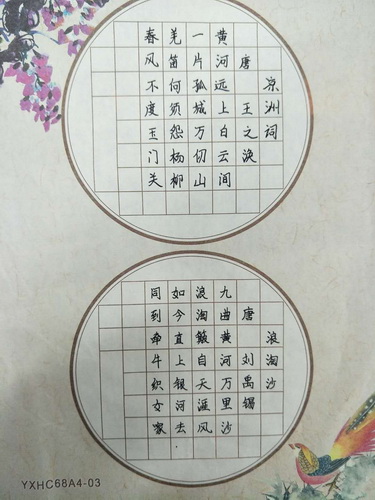 凉洲词
唐 王之涣
黄河远上白云间
一片孤城万仞山
羌笛何须怨杨柳
春风不度玉门关
浪淘沙
唐 刘禹锡
九曲黄河万里沙
浪淘簸自天涯风
如今直上银河去
同到牵牛织女家
YXHC68A4-03